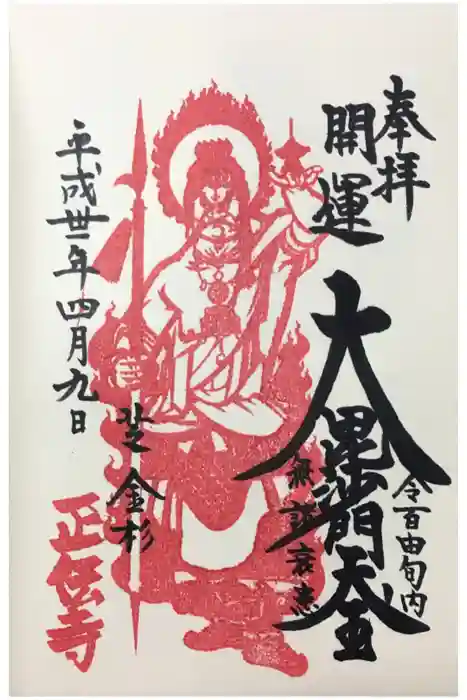 奉拝
開運
大毘沙門天王
令百由旬内
無諸衰患
芝 金杉
正伝寺
平成卅一年四月九日